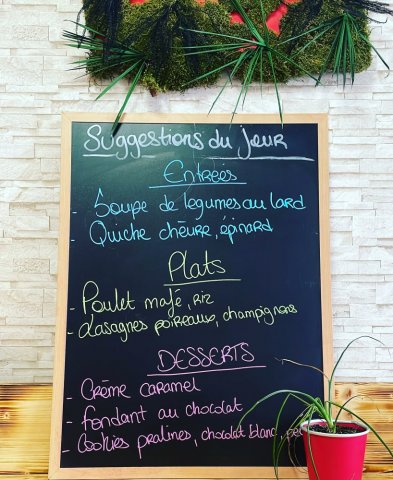 Suggestions du jour
Entrées
- Soupe de légumes au lard
- Quiche chèvre, épinard
Plats
- Poulet mafé, riz
- Lasagnes poireaux, champignons
DESSERTS
- Crème caramel
- Fondant au chocolat
- Cookies pralines, chocolat blanc,